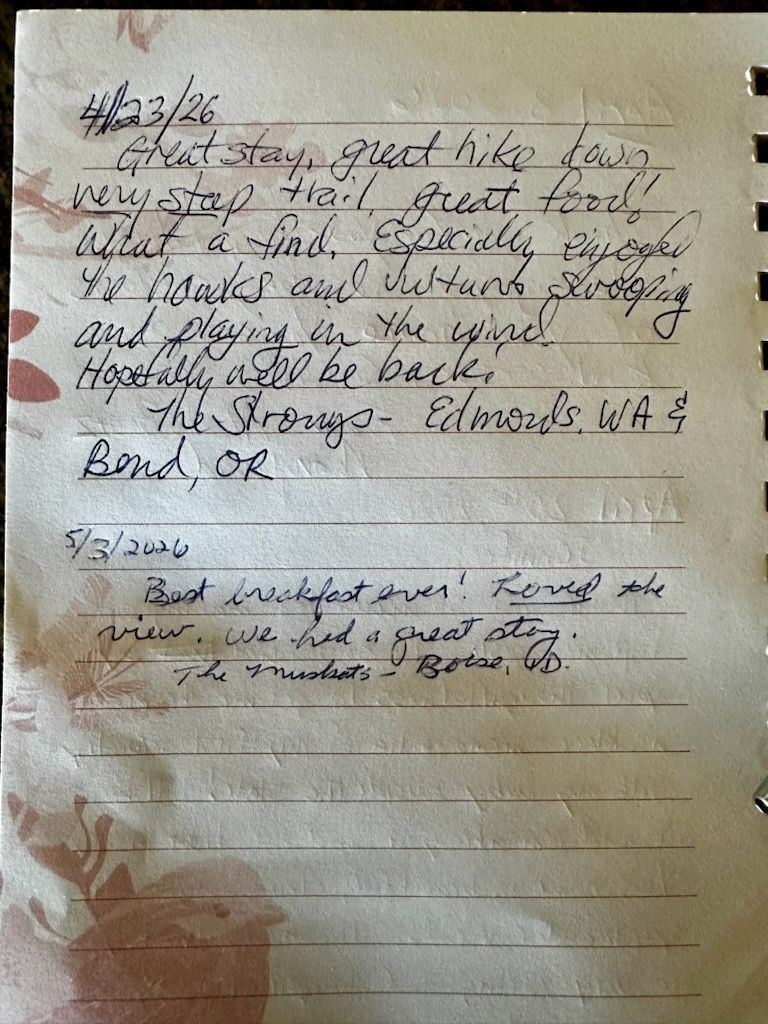 4/23/26
Great stay, great hike down
very steep trail, great food!
What a find. Especially enjoyed
the hawks and vultures swooping
and playing in the wind.
Hopefully we'll be back!
The Strongs - Edmonds, WA &
Bend, OR
5/3/2026
Best breakfast ever! Loved the
view. We had a great stay.
The - Boise, ID.